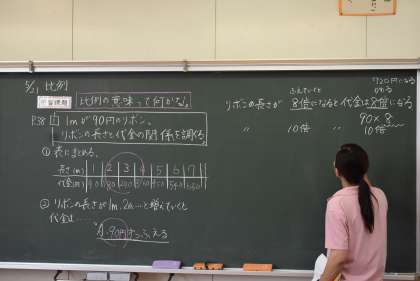 5/21 比例
学習課題 比例の意味って何かな。
P.38 1 1mが90円のリボン、
リボンの長さと代金の関係を調べる
① 表にまとめる、
長さ(m) 1 2 3 4 5 6 7
代金(円) 90 180 270 360 450 540 630
② リボンの長さが1m、2m…と増えていくと
代金は……
90円ずつふえる
720円になる
ふえていくと
リボンの長さが 8倍になると代金は8倍になる
90×8
〃 10倍 〃 10倍